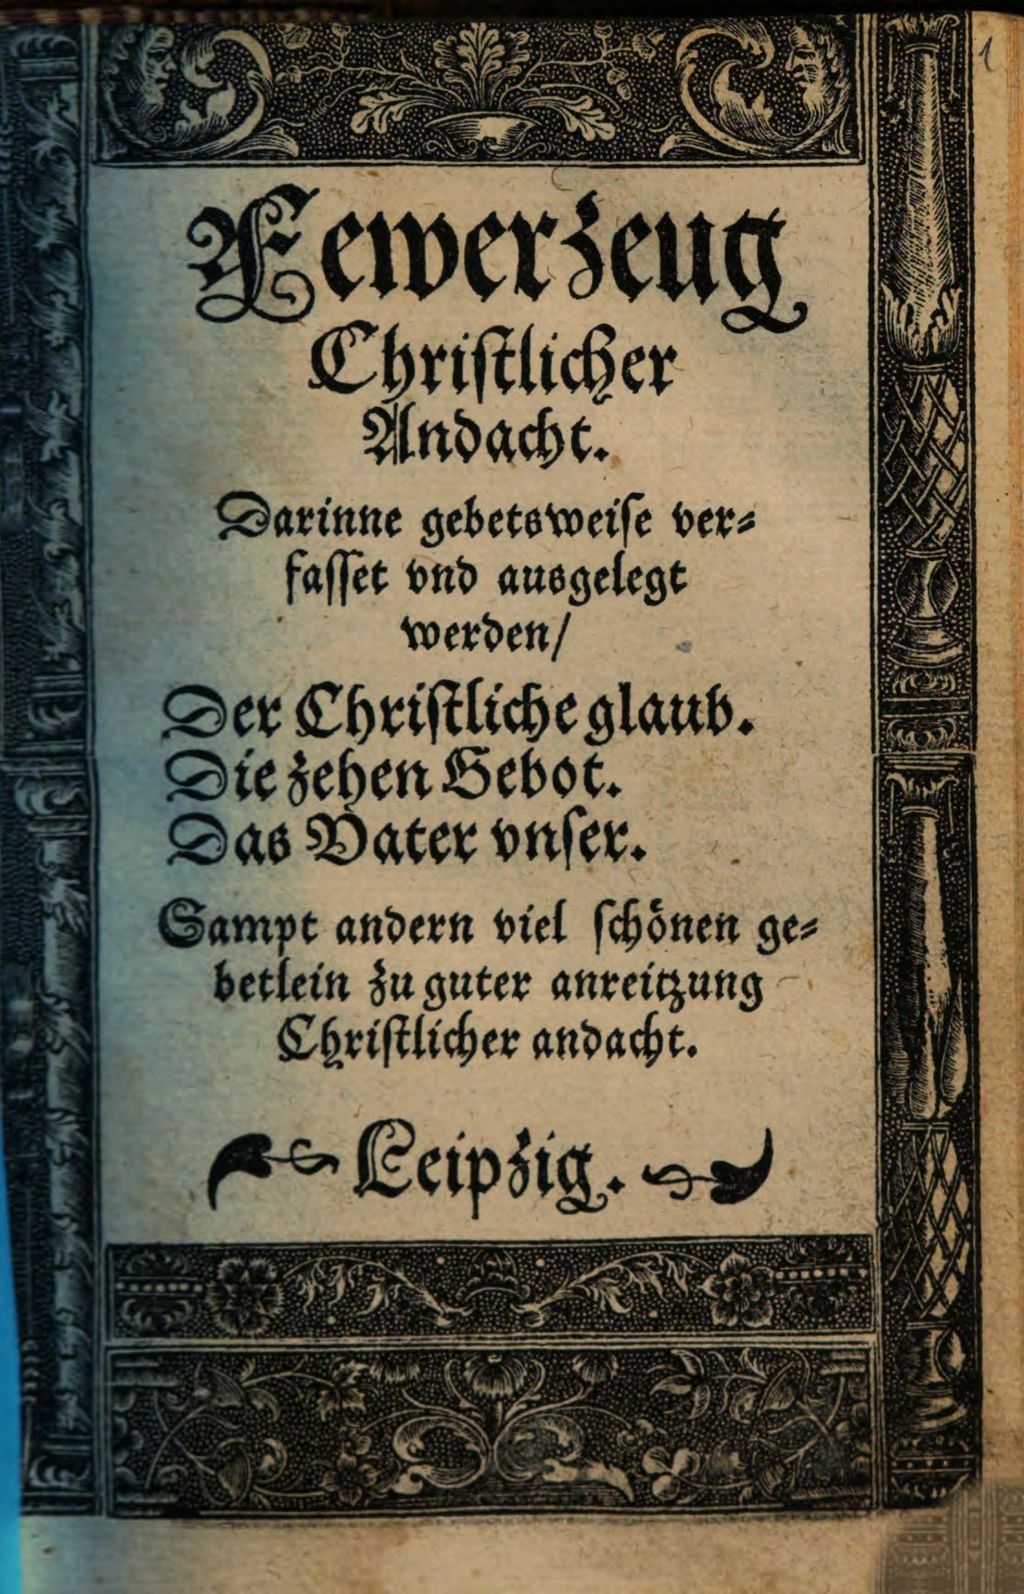 1
Fewerzeug
Christlicher
Andacht.
Darinne gebetsweise ver⸗
fasset vnd ausgelegt
werden/
Der Christliche glaub.
Die zehen Gebot.
Das Vater vnser.
Sampt andern viel schönen ge⸗
betlein zu guter anreitzung
Christlicher andacht.
Leipzig.